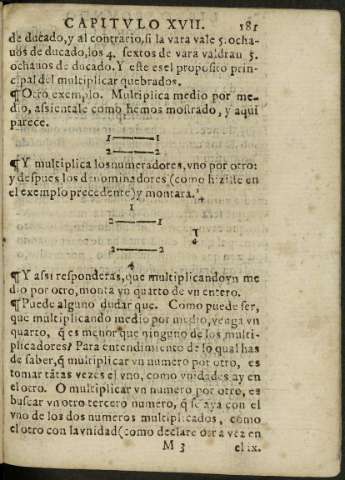 CAPITVLO XVII. 181
de ducado, y al contrario, si la vara vale 5. ocha-
uos de ducado, los 4. sextos de vara valdran 5.
ochauos de ducado. Y este es el proposito prin-
cipal del multiplicar quebrados.
¶ Otro exemplo. Multiplica medio por me-
dio, assientale como hemos mostrado, y aqui
parece.
1———1
2———2
¶ Y multiplica los numeradores, vno por otro:
y despues los denominadores (como hiziste en
el exemplo precedente) y montara.
1
2———1
1
2———2
4
¶ Y assi responderas, que multiplicando vn me
dio por otro, monta vn quarto de vn entero.
¶ Puede alguno dudar que. Como puede ser,
que multiplicando medio por medio, venga vn
quarto, q̃ es menor que ninguno de los multi-
plicadores? Para entendimiento de lo qual has
de saber, q̃ multiplicar vn numero por otro, es
tomar tãtas vezes el vno, como vnidades ay en
el otro. O multiplicar vn numero por otro, es
buscar vn otro tercero numero, q̃ se aya con el
vno de los dos numeros multiplicados, como
el otro con la vnidad (como declare otra vez en
M 3 el ix.